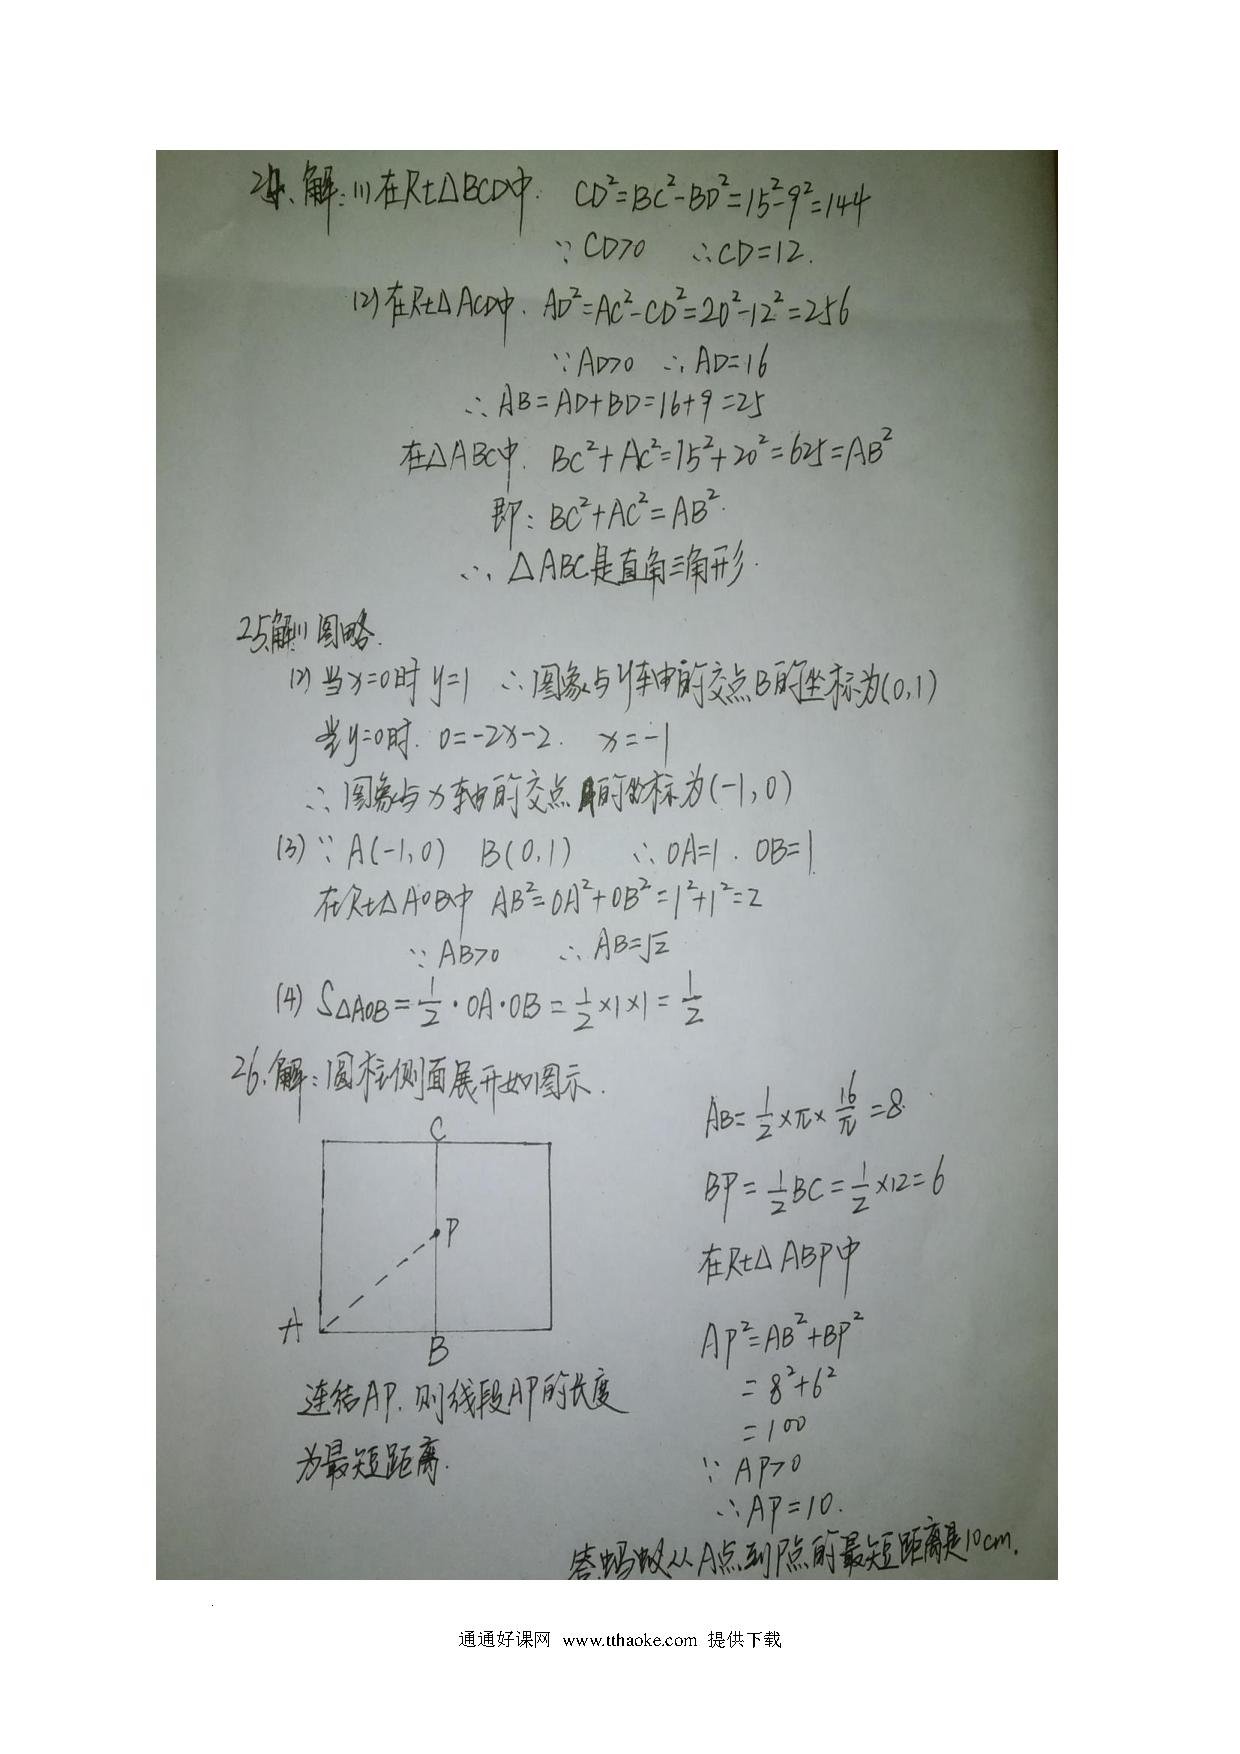 24、解:(1)在Rt△BCD中. CD²=BC²-BD²=15²-9²=144
∵CD>0 ∴CD=12.
(2)在Rt△ACD中. AD²=AC²-CD²=20²-12²=256
∵AD>0 ∴AD=16
∴AB=AD+BD=16+9=25
在△ABC中. BC²+AC²=15²+20²=625=AB²
即:BC²+AC²=AB².
∴△ABC是直角三角形.
25、解(1)图略.
(2)当x=0时 y=1 ∴图象与y轴的交点B的坐标为(0,1)
当y=0时. 0=-2x-2. x=-1
∴图象与x轴的交点A的坐标为(-1,0)
(3)∵A(-1,0) B(0,1) ∴OA=1. OB=1
在Rt△AOB中 AB²=OA²+OB²=1²+1²=2
∵AB>0 ∴AB=√2
(4) S△AOB=1/2·OA·OB=1/2×1×1=1/2
26、解:圆柱侧面展开如图示.
C
P
A
B
连结AP.则线段AP的长度
为最短距离.
AB=1/2×π×16/π=8.
BP=1/2BC=1/2×12=6
在Rt△ABP中
AP²=AB²+BP²
=8²+6²
=100
∵AP>0
∴AP=10.
答:蚂蚁从A点到P点的最短距离是10cm.
通通好课网 www.tthaoke.com 提供下载